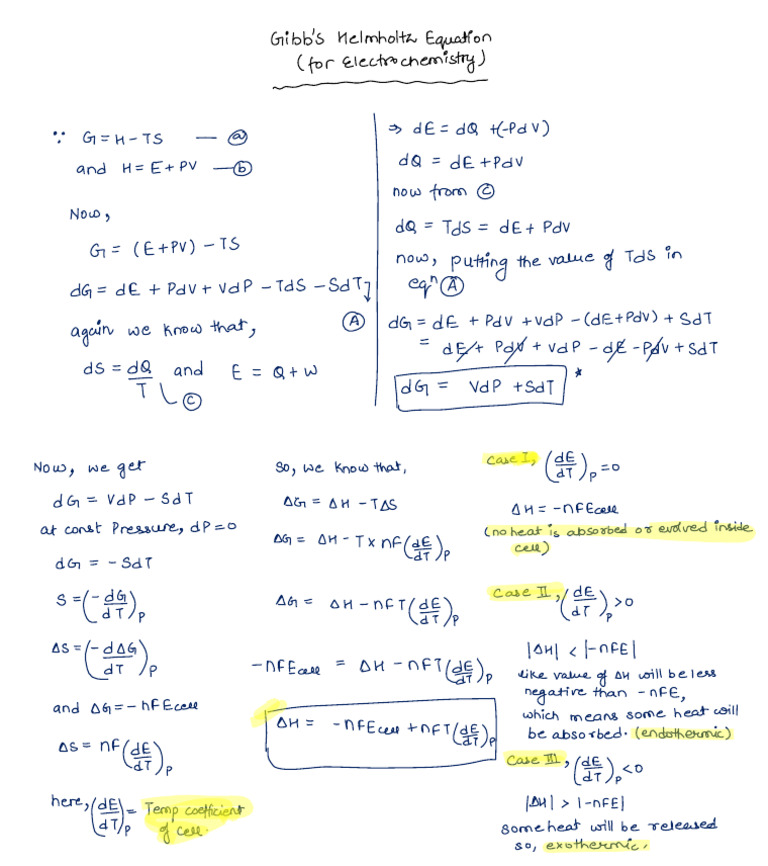 Gibb's Helmholtz Equation
(for Electrochemistry)
∵ G = H - TS — (a)
and H = E + PV — (b)
Now,
G = (E + PV) - TS
dG = dE + PdV + VdP - TdS - SdT
(A)
again we know that,
dS = dQ/T and E = Q + W
(C)
⇒ dE = dQ + (-PdV)
dQ = dE + PdV
now from (C)
dQ = TdS = dE + PdV
now, putting the value of TdS in
eqⁿ (A)
dG = dE + PdV + VdP - (dE + PdV) + SdT
= dE + PdV + VdP - dE - PdV + SdT
dG = VdP + SdT *
Now, we get
dG = VdP - SdT
at const Pressure, dP = 0
dG = - SdT
S = (-dG/dT)_P
ΔS = (-dΔG/dT)_P
and ΔG = - nFEcell
ΔS = nF(dE/dT)_P
here, (dE/dT)_P = Temp coefficient
of cell.
So, we know that,
ΔG = ΔH - TΔS
ΔG = ΔH - T × nF(dE/dT)_P
ΔG = ΔH - nFT(dE/dT)_P
-nFEcell = ΔH - nFT(dE/dT)_P
ΔH = -nFEcell + nFT(dE/dT)_P
Case I, (dE/dT)_P = 0
ΔH = -nFEcell
(no heat is absorbed or evolved inside
cell)
Case II, (dE/dT)_P > 0
|ΔH| < |-nFE|
like value of ΔH will be less
negative than -nFE,
which means some heat will
be absorbed. (endothermic)
Case III, (dE/dT)_P < 0
|ΔH| > |-nFE|
some heat will be released
so, exothermic.